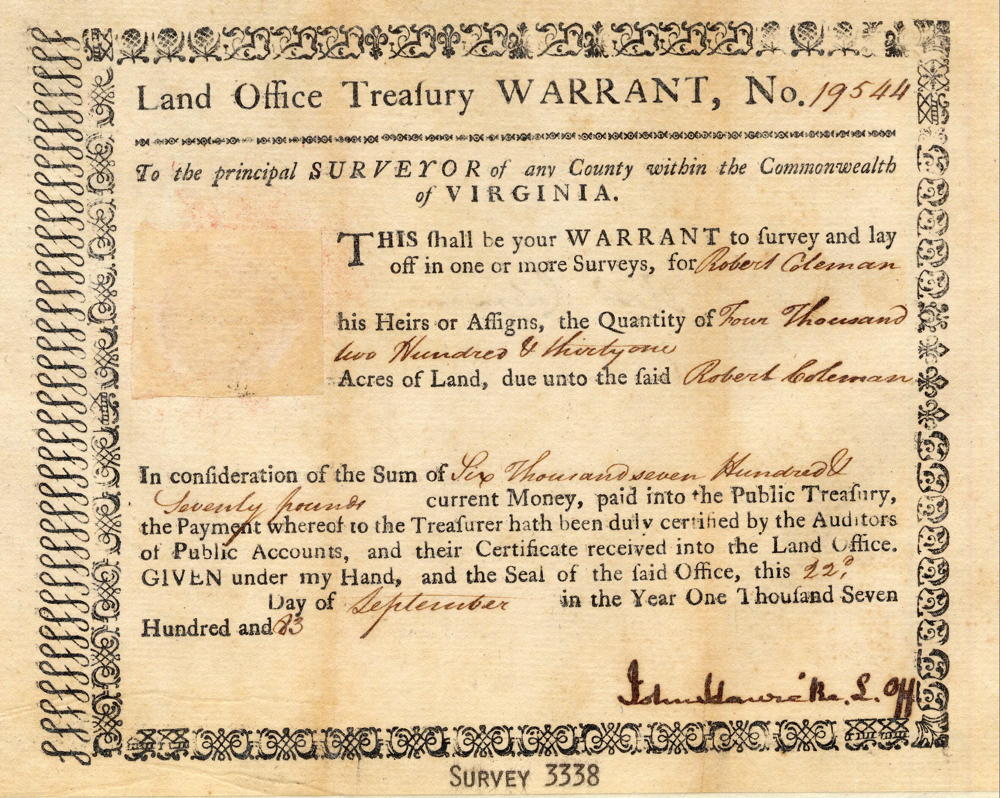 Land Office Treaſury WARRANT, No. 19544
To the principal SURVEYOR of any County within the Commonwealth
of VIRGINIA.
THIS ſhall be your WARRANT to ſurvey and lay
off in one or more Surveys, for Robert Coleman
his Heirs or Aſſigns, the Quantity of Four Thousand
two Hundred & thirtyone
Acres of Land, due unto the ſaid Robert Coleman
In conſideration of the Sum of Six Thousand seven Hundred &
Seventy pounds current Money, paid into the Public Treaſury,
the Payment whereof to the Treaſurer hath been duly certified by the Auditors
of Public Accounts, and their Certificate received into the Land Office.
GIVEN under my Hand, and the Seal of the ſaid Office, this 22d
Day of September in the Year One Thouſand Seven
Hundred and 83
John Harvie R. L. Off
SURVEY 3338